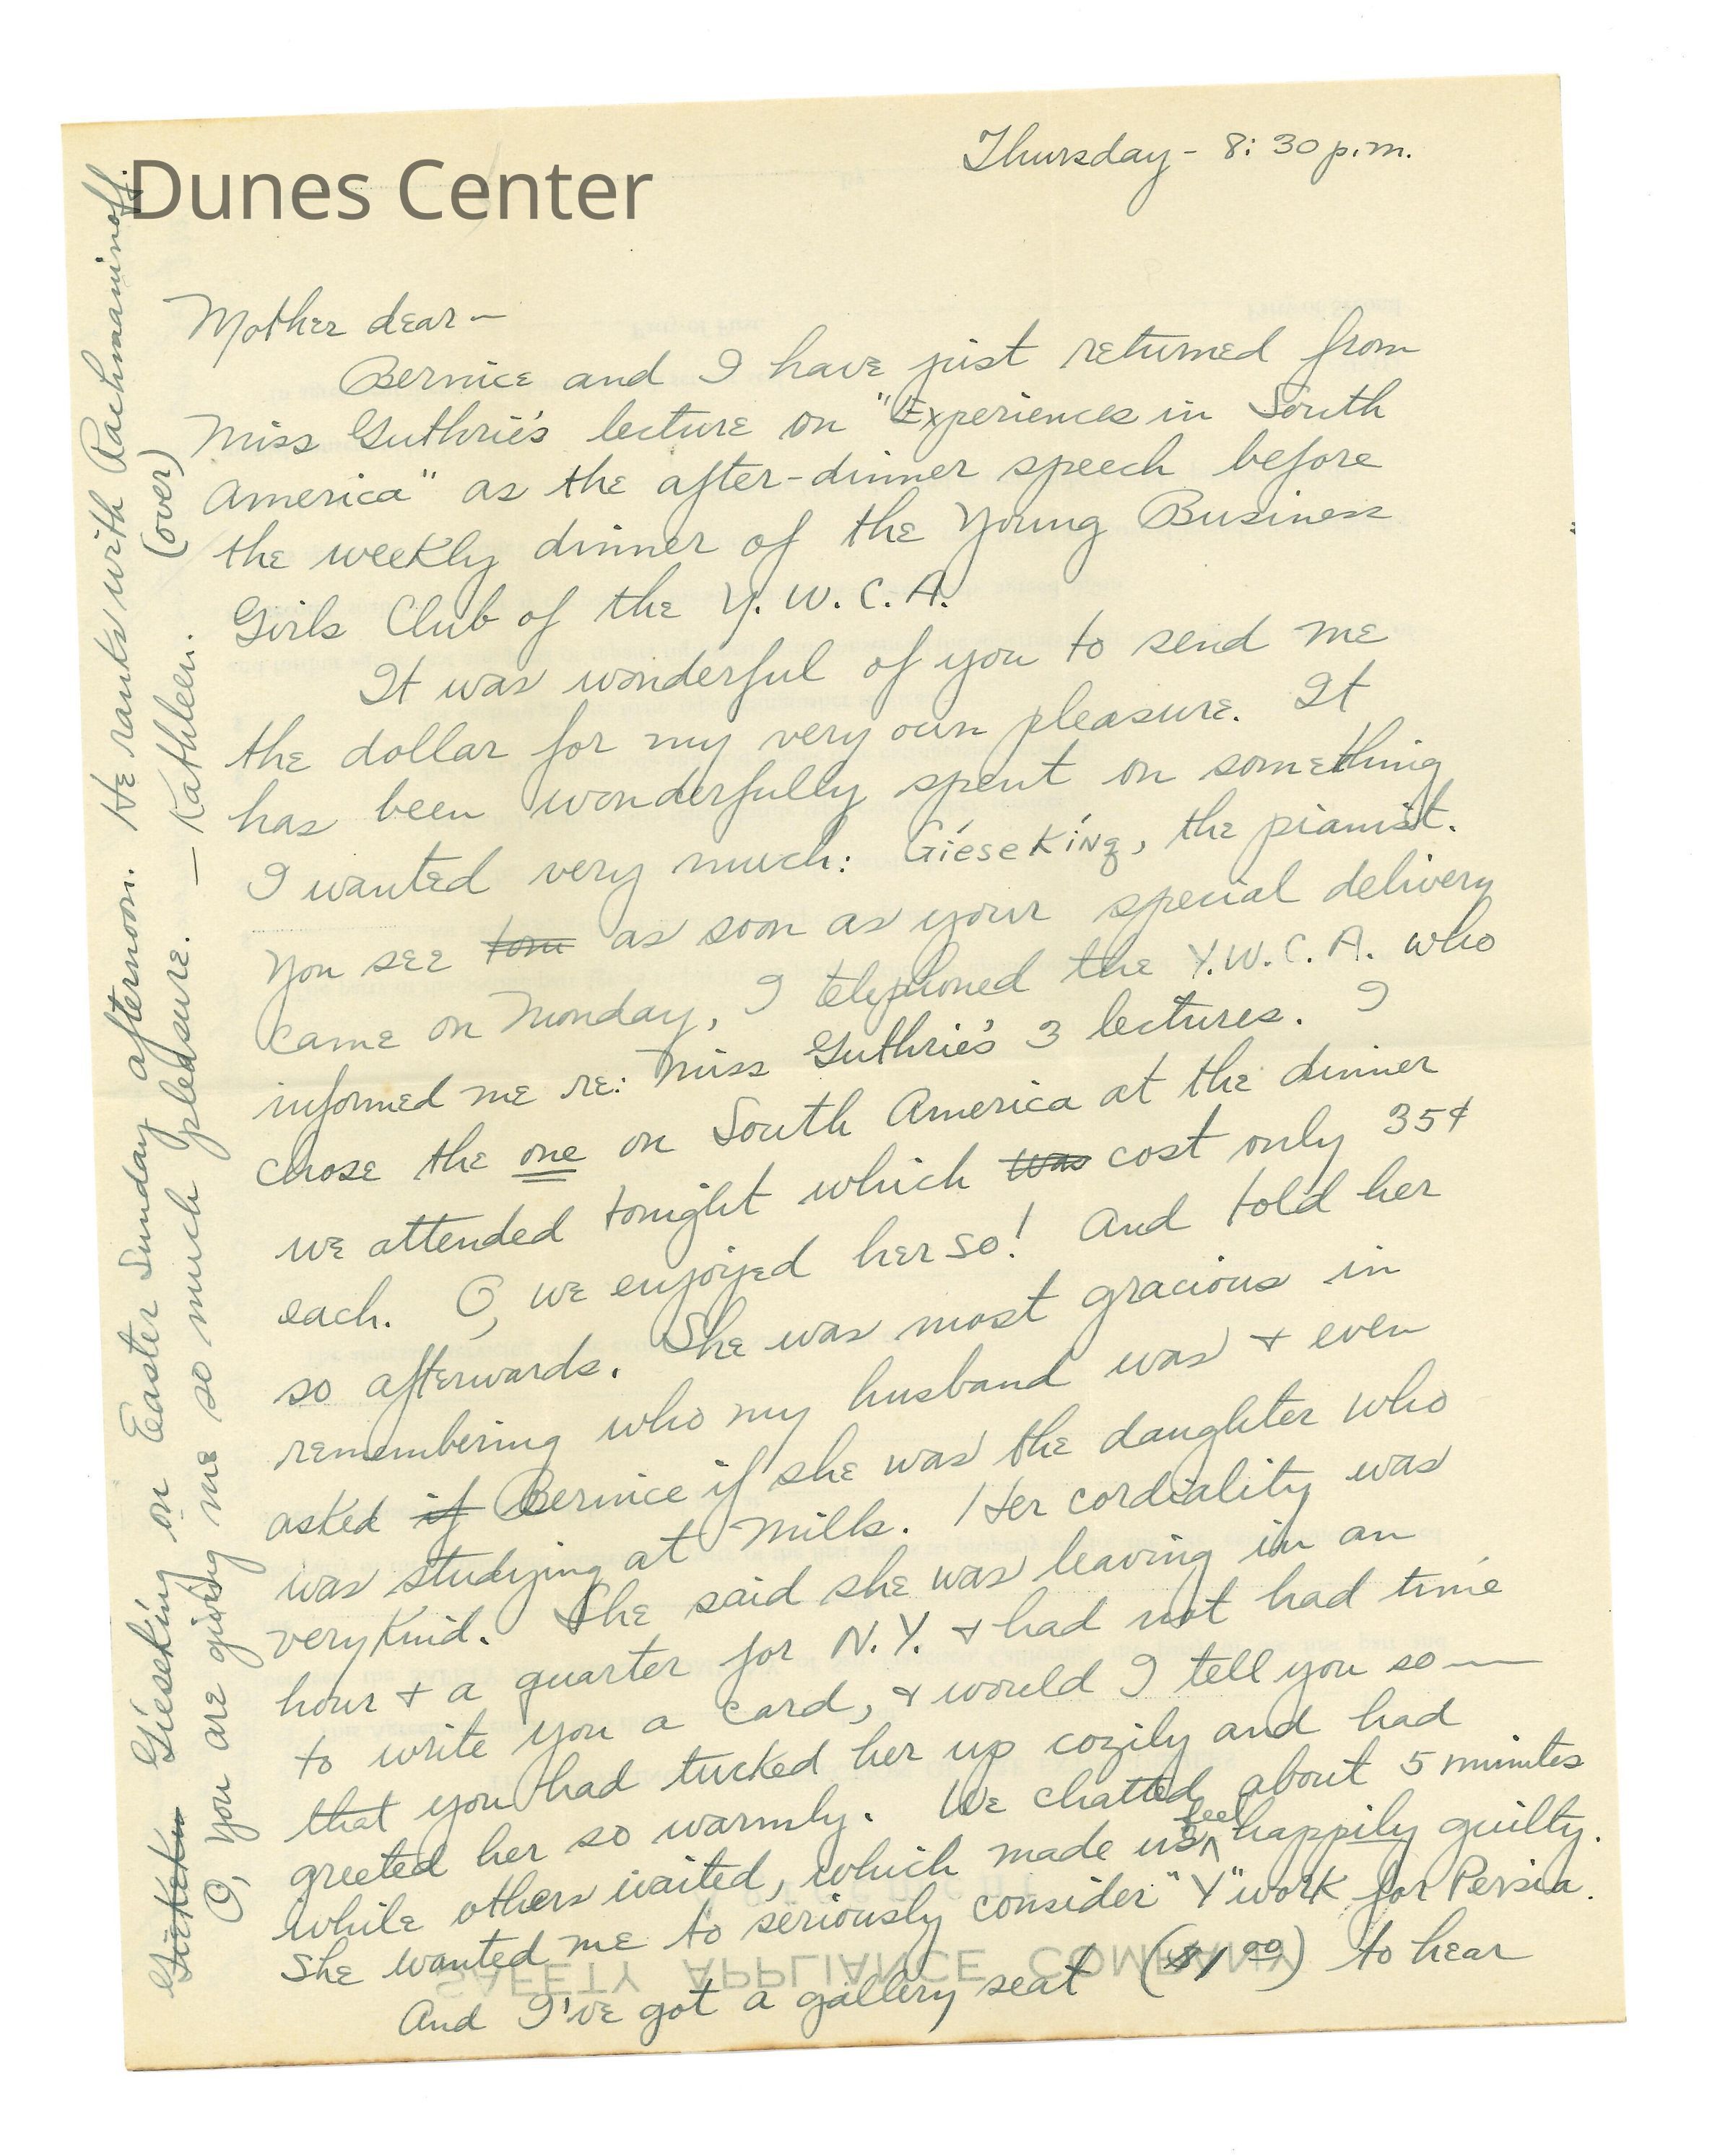 Dunes Center
Thursday - 8:30 p.m.
Mother dear—
Bernice and I have just returned from
Miss Guthrie's lecture on "Experiences in South
America" as the after-dinner speech before
the weekly dinner of the Young Business
Girls Club of the Y.W.C.A.
It was wonderful of you to send me
the dollar for my very own pleasure. It
has been wonderfully spent on something
I wanted very much: Gieseking, the pianist.
You see as soon as your special delivery
came on Monday, I telephoned the Y.W.C.A. who
informed me re: Miss Guthrie's 3 lectures. I
chose the one on South America at the dinner
we attended tonight which was cost only 35¢
each. O, we enjoyed her so! And told her
so afterwards. She was most gracious in
remembering who my husband was & even
asked if Bernice if she was the daughter who
was studying at Mills. Her cordiality was
very kind. She said she was leaving in an
hour & a quarter for N.Y. & had not had time
to write you a card, & would I tell you so—
that you had tucked her up cozily and had
greeted her so warmly. We chatted about 5 minutes
while others waited, which made us feel happily guilty.
She wanted me to seriously consider "Y" work for Persia.
And I've got a gallery seat ($1.00) to hear
Gieseking on Easter Sunday afternoon. He ranks with Rachmaninoff.
O, you are giving me so much pleasure. — Kathleen.
(over)
SAFETY APPLIANCE COMPANY